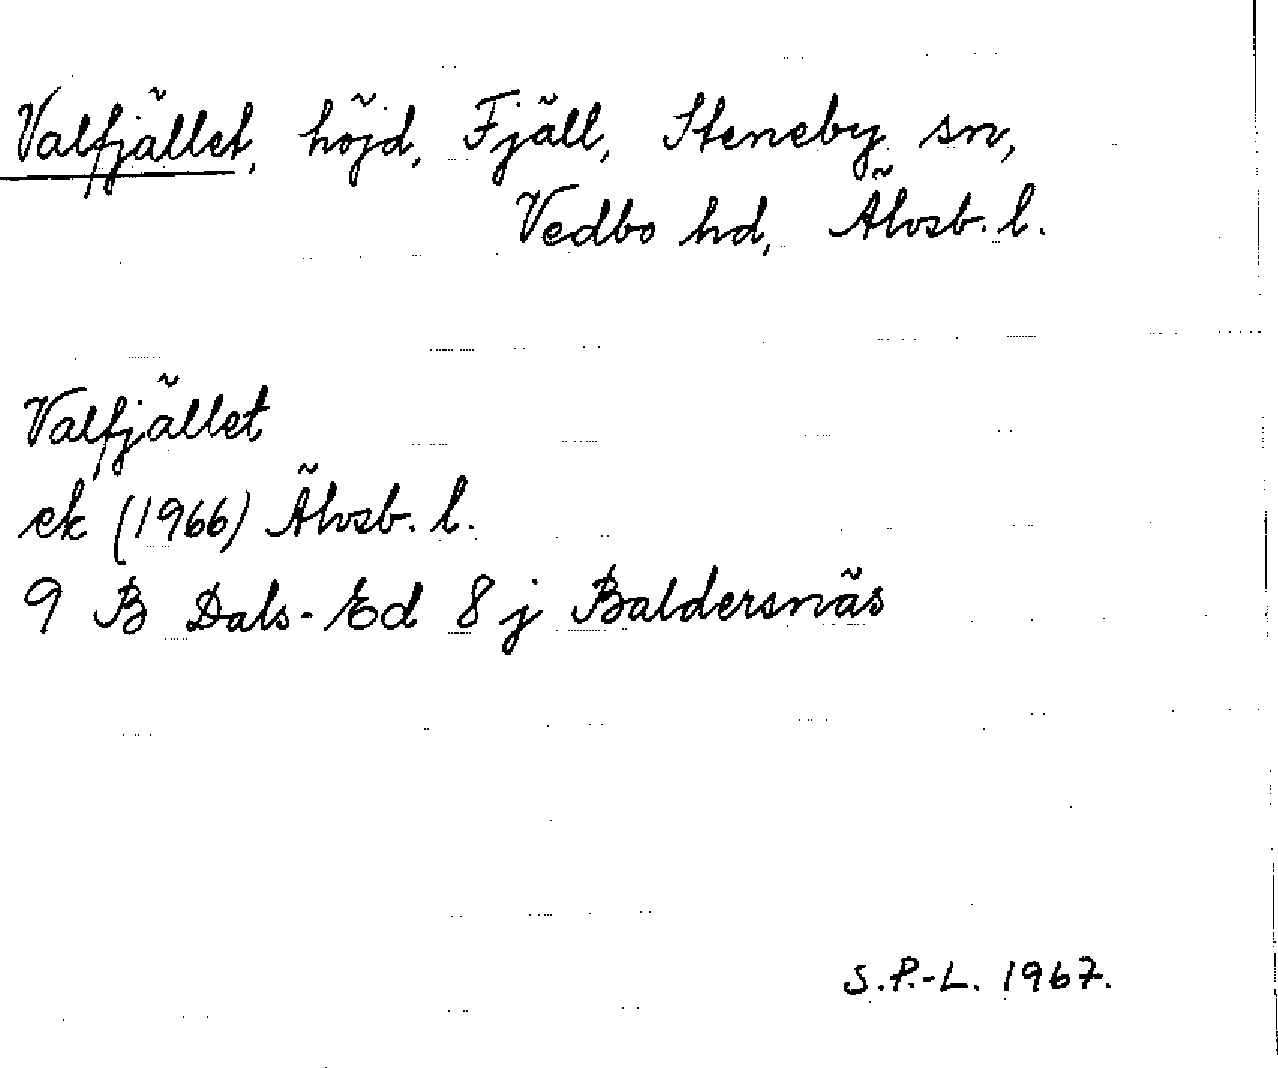 Valfjället, höjd, Fjäll, Steneby sn,
Vedbo hd, Älvsb. l.
Valfjället
ek (1966) Älvsb. l.
9 B Dals-Ed 8 j Baldersnäs
S.P.-L. 1967.